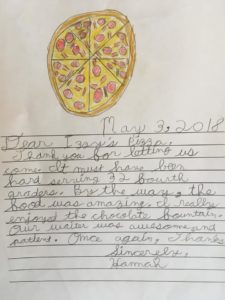 May 3, 2018
Dear Izzy's Pizza,
Thank you for letting us
come. It must have been
hard serving 32 fourth
graders. By the way, the
food was amazing. I really
enjoyed the chocolate fountain.
Our waiter was awesome and
patient. Once again, Thanks
Sincerely,
Hannah